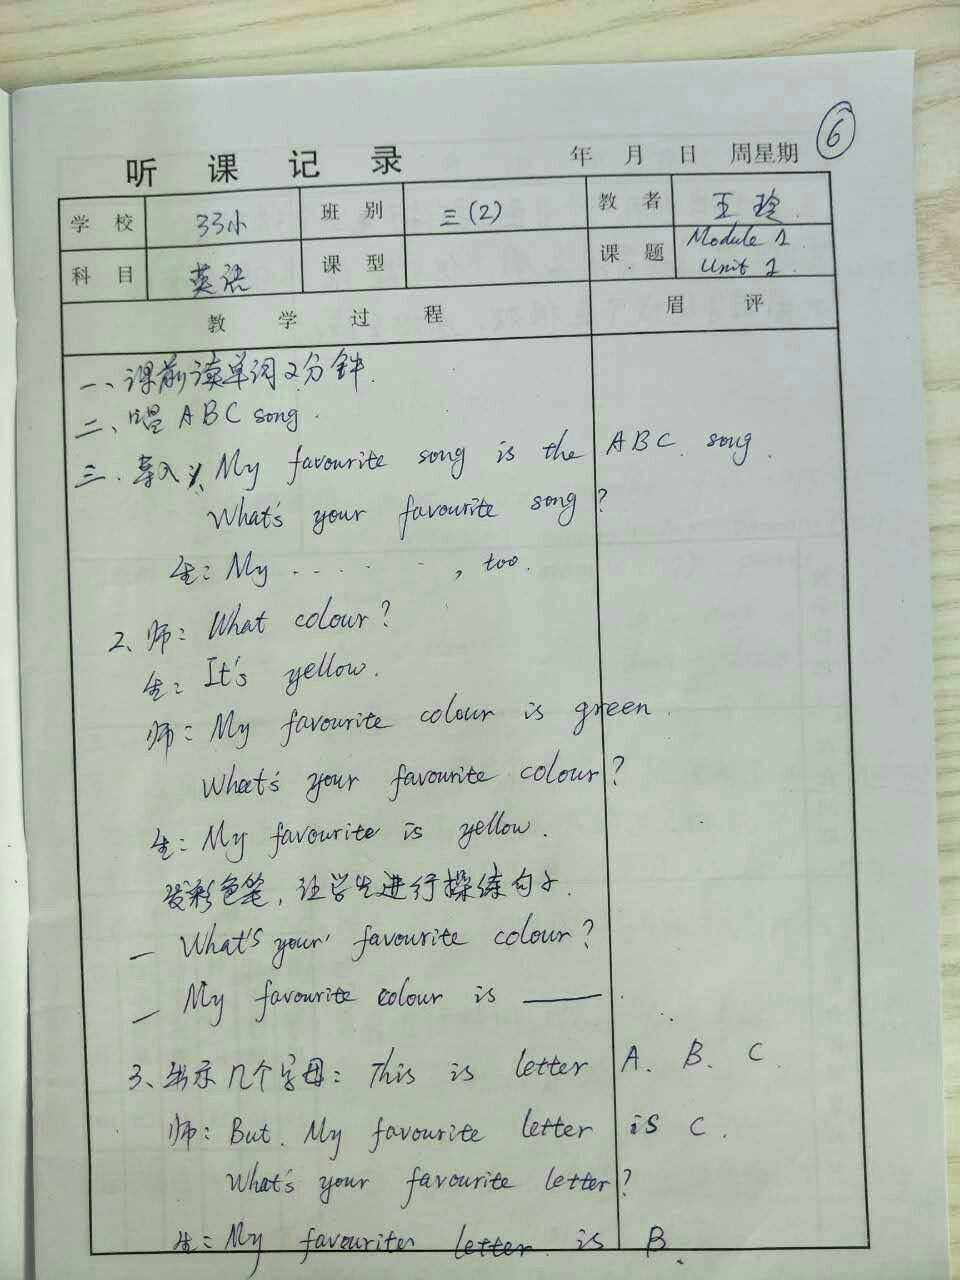 6
听课记录 年 月 日 周星期
学校 33小 班别 三(2) 教者 王玲
科目 英语 课型 课题 Module 1 Unit 1
教学过程 眉评
一、课前读单词2分钟.
二、唱 ABC song.
三.导入 1、My favourite song is the ABC song.
What's your favourite song?
生: My ......, too.
2、师: What colour?
生: It's yellow.
师: My favourite colour is green.
What's your favourite colour?
生: My favourite is yellow.
发彩色笔,让学生进行操练句子.
— What's your favourite colour?
— My favourite colour is ____.
3、出示几个字母: This is letter A. B. C.
师: But. My favourite letter is C.
What's your favourite letter?
生: My favourites letter is B.